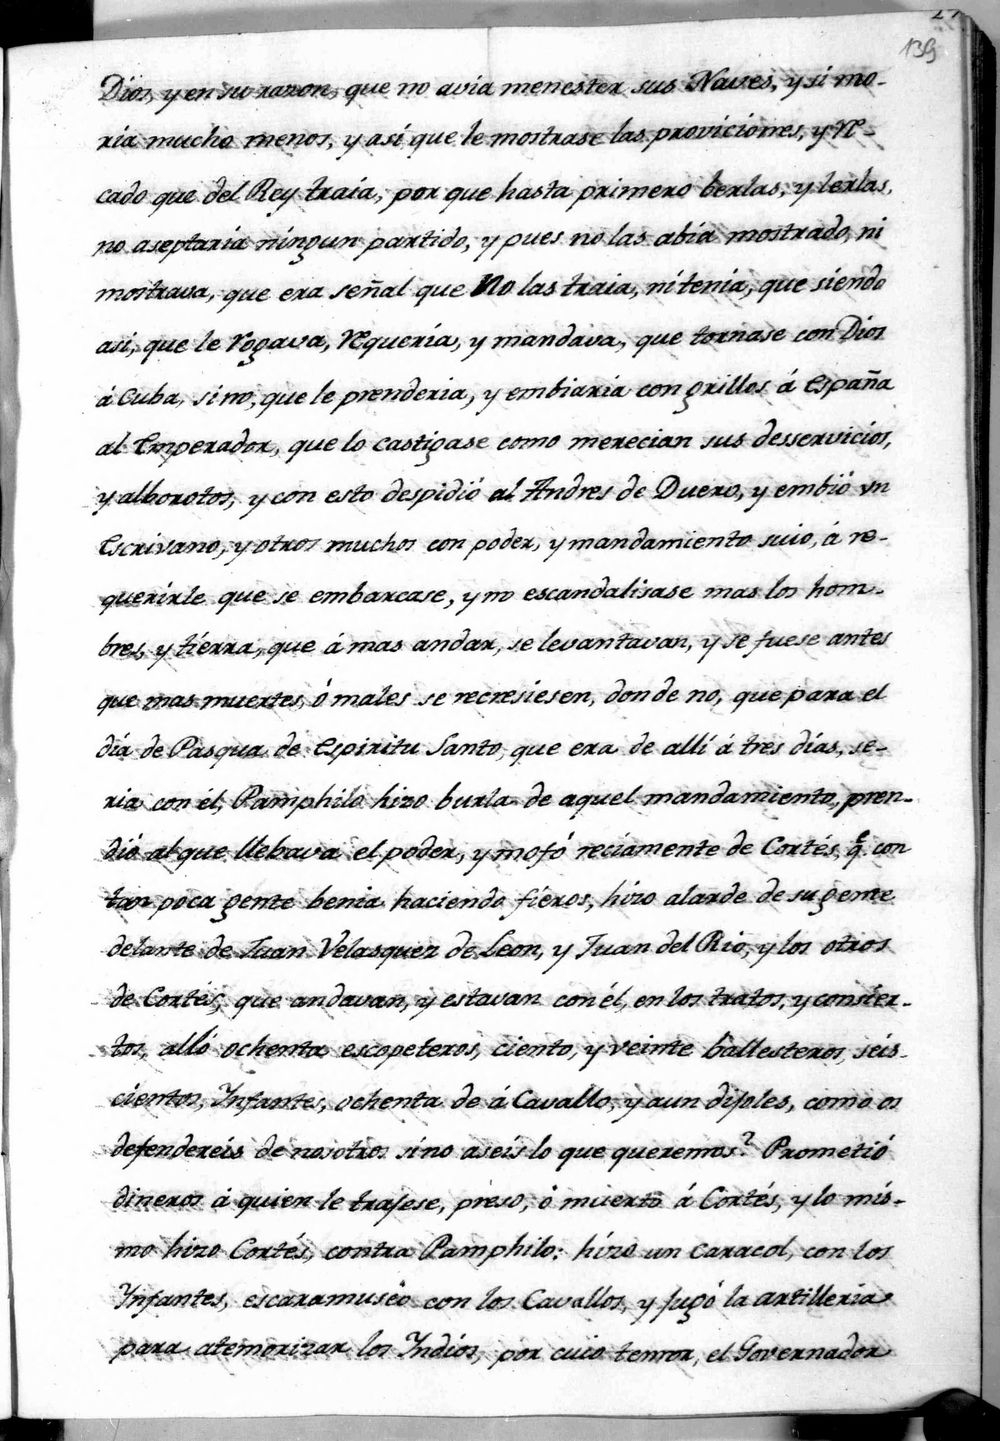 139
Dios, y en su razon, que no avia menester sus Naves, y si mo-
ria mucho menos, y así que le mostrase las proviciones, y re-
cado que del Rey traía, por que hasta primero berlas, y lerlas,
no aseptaría ningun partido, y pues no las abía mostrado, ni
mostrava, que era señal que no las traia, ni tenia, que siendo
asi, que le rogava, requería, y mandava, que tornase con Dios
á Cuba, si no, que le prenderia, y embiaria con grillos á España
al Emperador, que lo castigase como merecian sus desservicios,
y alborotos, y con esto despidió al Andres de Duero, y embió un
Escrivano, y otros muchos con poder, y mandamiento suio, á re-
querirle que se embarcase, y no escandalisase mas los hom-
bres, y tiérra, que á mas andar, se levantavan, y se fuese antes
que mas muertes, ó males se recresiesen, donde no, que para el
día de Pasqua de Espiritu Santo, que era de allí á tres días, se-
ria con él, Pamphilo hizo burla de aquel mandamiento, pren-
dió al que llebava el poder, y mofó reciamente de Cortés, q.e con
tan poca gente benia haciendo fiéros, hizo alarde de su gente
delante de Juan Velasquez de Leon, y Juan del Rio, y los otros
de Cortés, que andavan, y estavan con él, en los tratos, y consier-
tos, alló ochenta escopeteros, ciento, y veinte ballesteros, seis-
cientos, Infantes, ochenta de á Cavallo, y aun díjoles, como os
defendereis de nosotros si no aseis lo que queremos? Prometió
dineros á quien le trajese, preso, ó muerto á Cortés, y lo mis-
mo hizo Cortés, contra Pamphilo: hizo un caracol, con los
Infantes, escaramuseó con los Cavallos, y jugó la artilleria
para atemorizar los Yndios, por cuio temor, el Governador